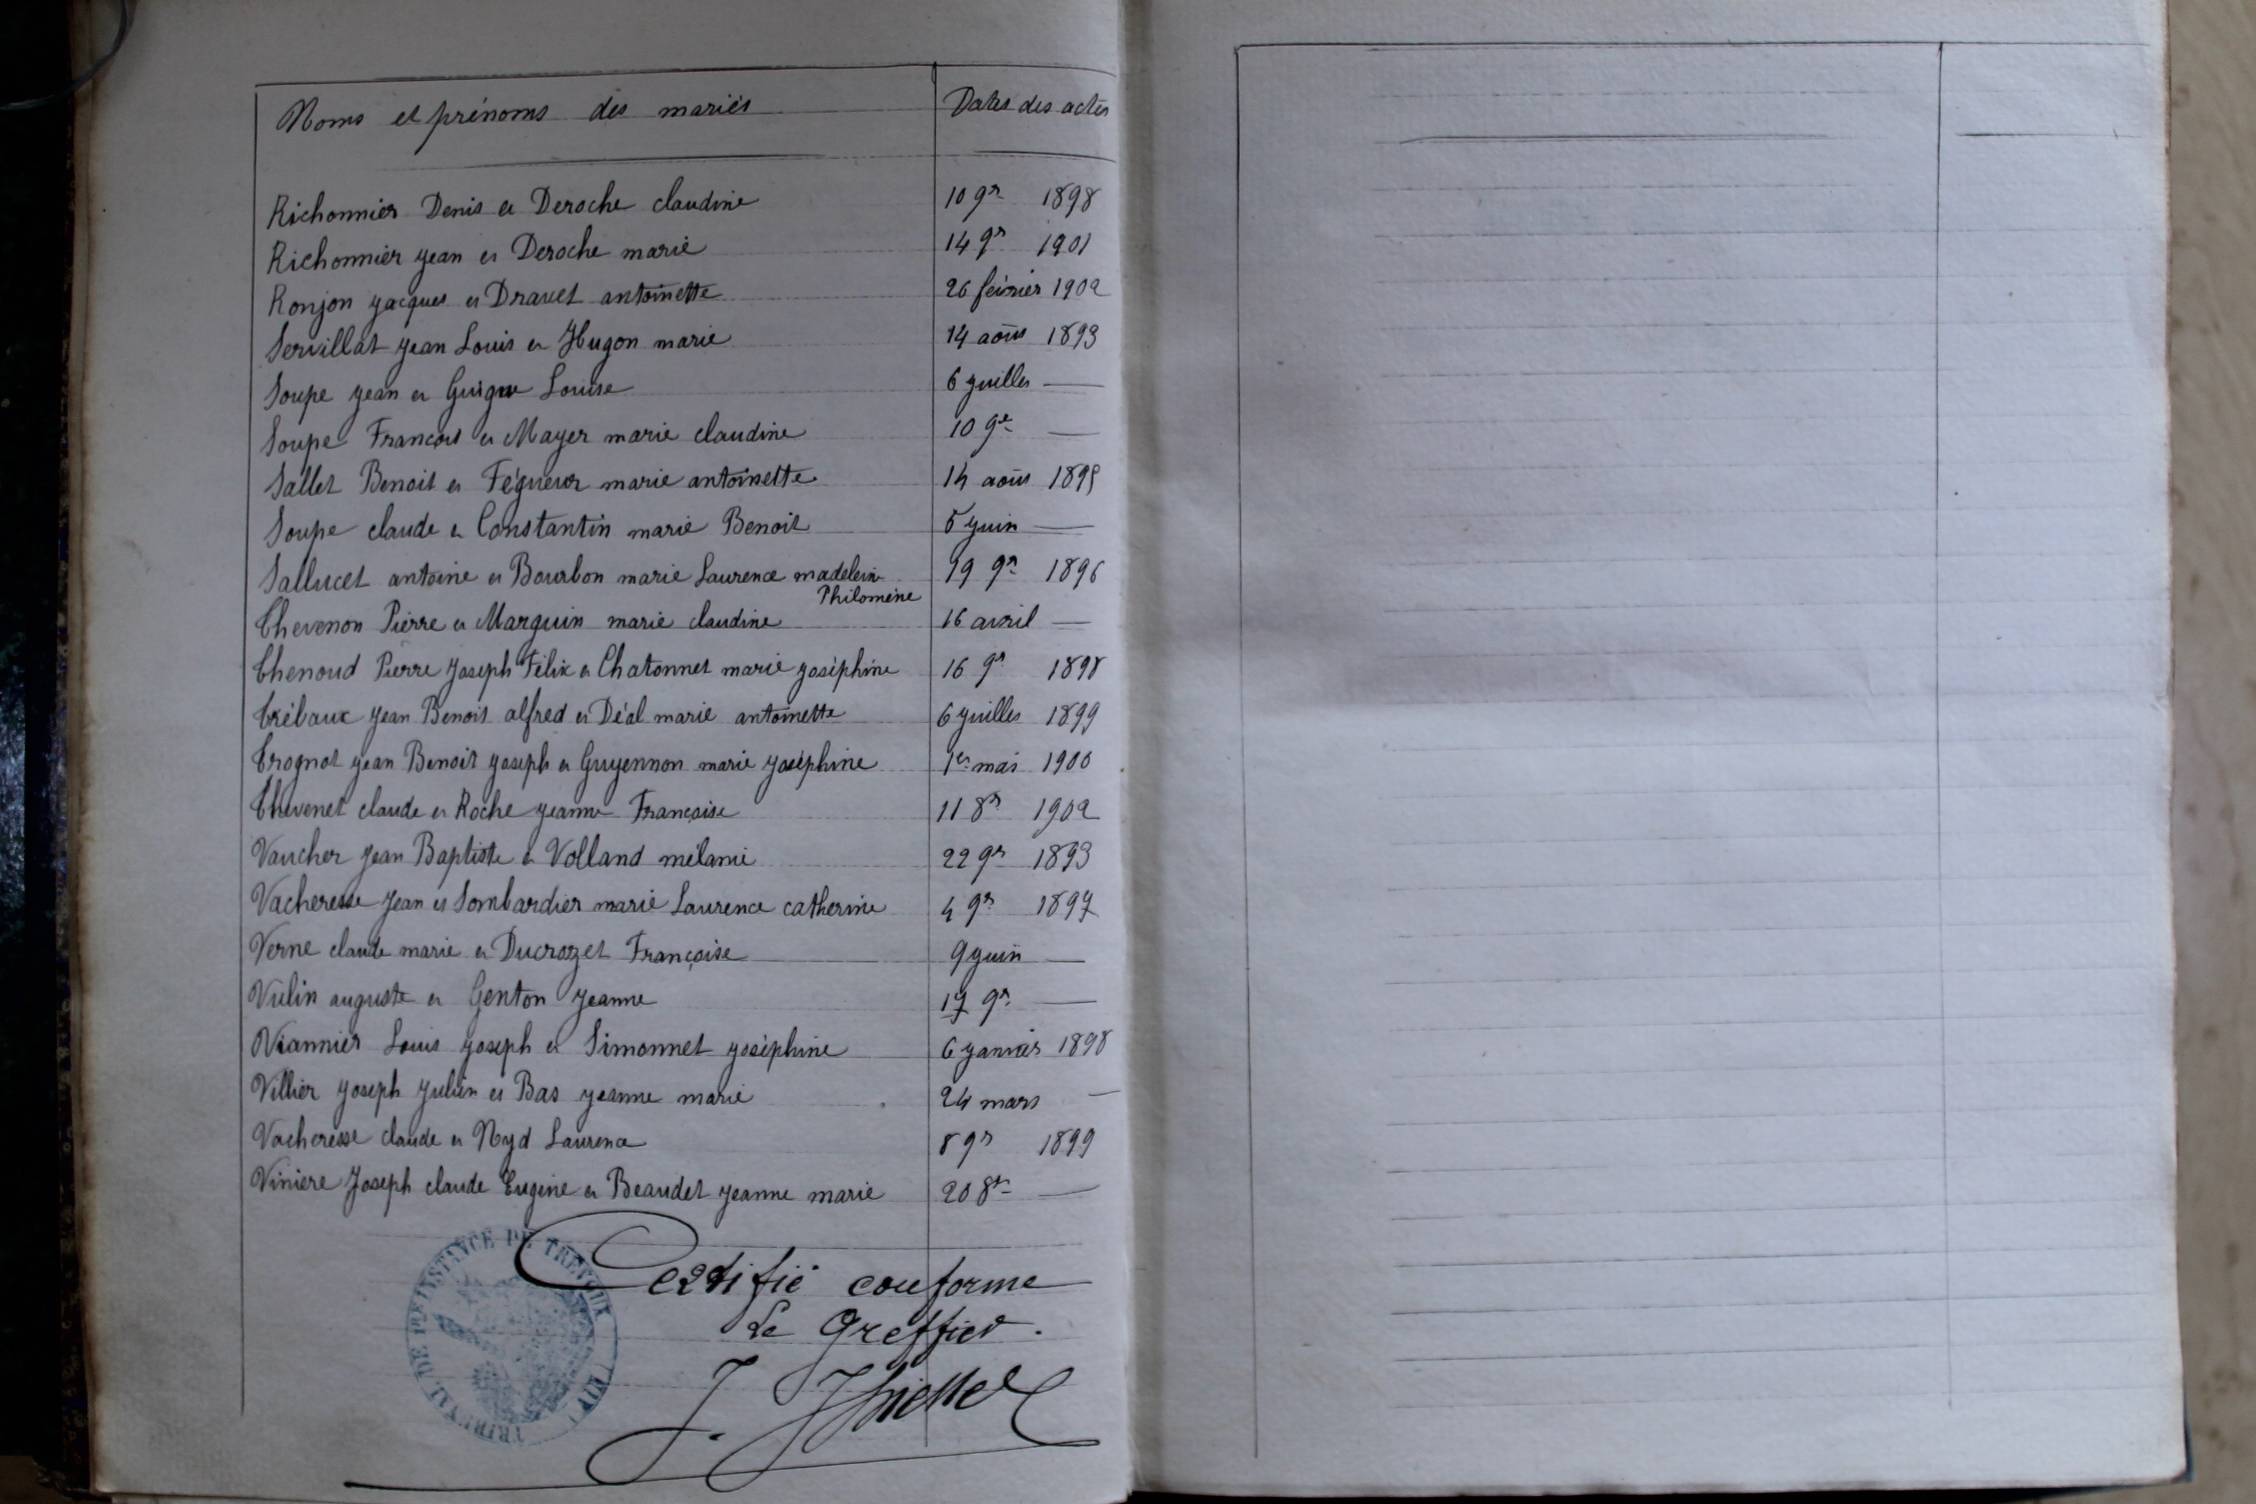 Noms et prénoms des mariés Dates des actes
Richonnier Denis et Deroche claudine 10 9re 1898
Richonnier jean et Deroche marie 14 9re 1901
Ronjon jacques et Dravet antoinette 26 février 1902
Servillat jean Louis et Hugon marie 14 août 1893
Soupe jean et Guigue Louise 6 juillet —
Soupe François et Mayer marie claudine 10 9re —
Sallet Benoit et marie antoinette 14 août 1895
Soupe claude et Constantin marie Benoit 5 juin —
Sallucet antoine et Bourbon marie Laurence madeleine 19 9re 1896
Philomène
Thevenon Pierre et Marguin marie claudine 16 avril —
Thenoud Pierre Joseph Félix et Chatonnet marie joséphine 16 9re 1898
Trébaux jean Benoit alfred et Déal marie antoinette 6 juillet 1899
Trognot jean Benoit joseph et Guyennon marie joséphine 1er mai 1900
Thevenet claude et Roche jeanne Françoise 11 8re 1902
Vaucher jean Baptiste et Volland mélanie 22 9re 1893
Vacheresse jean et Sombardier marie Laurence catherine 4 9re 1897
Verne claude marie et Ducrozet Françoise 9 juin —
Vulin auguste et Genton jeanne 17 9re —
Viannier Louis joseph et Simonnet joséphine 6 janvier 1898
Villier joseph julien et Bas jeanne marie 24 mars —
Vacheresse claude et Nyd Laurence 8 9re 1899
Viniere Joseph claude Eugène et Beaudet jeanne marie 20 8re —
Certifié conforme
Le Greffier.
TRIBUNAL DE PRE INSTANCE DE TREVOUX